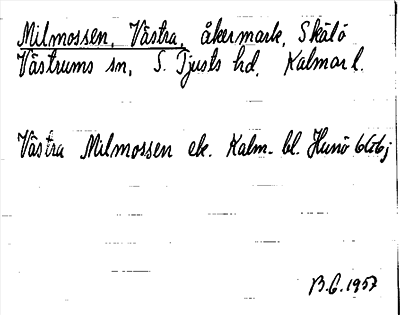 Milmossen, Västra, åkermark, Skälö
Västrums sn, S. Tjusts hd, Kalmar l.
Västra Milmossen ek. Kalm. bl. Hunö 6G6j
B.G. 1957